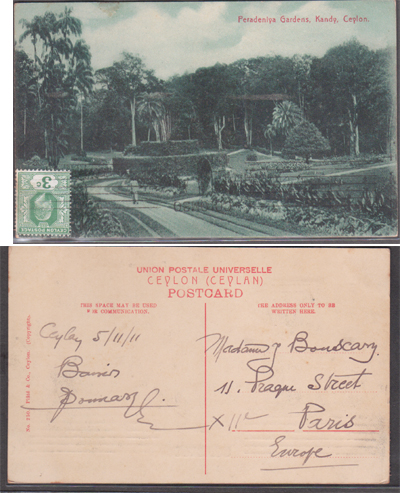 Peradeniya Gardens, Kandy, Ceylon.
3c
CEYLON POSTAGE
UNION POSTALE UNIVERSELLE
CEYLON (CEYLAN)
POSTCARD
THIS SPACE MAY BE USED
FOR COMMUNICATION.
THE ADDRESS ONLY TO BE
WRITTEN HERE.
Ceylon 5/11/11
Madame
11. Prague Street
Paris
Europe
Plâté & Co., Ceylon. (Copyright).